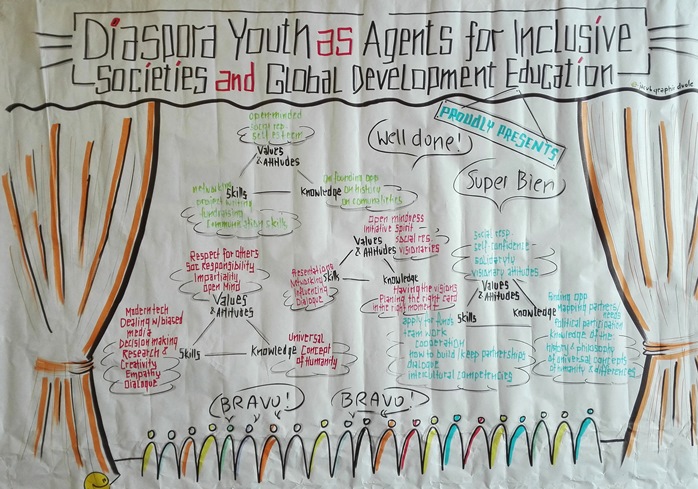 Diaspora Youth as Agents for Inclusive
Societies and Global Development Education
PROUDLY PRESENTS
Well done!
Super Bien
open-minded
social resp.
self esteem
Values
& Attitudes
Skills
Knowledge
networking
project writing
fundraising
communication skills
on founding opp
on history
on comunalities
Respect for others
Soz. Responsibility
Impartiality
open Mind
Values
& Attitudes
Skills
Knowledge
Modern tech
Dealing w/biased
media
Decision making
Research &
Creativity
Empathy
Dialogue
universal
Concept
of Humanity
open mindness
Initiative spirit
social res.
visionaries
Values
& Attitudes
Skills
Knowledge
Presentations
Networking
Influencing
Dialogue
Having the visions
Planing the right card
in the right moment
social resp
self-confidence
solidarity
visionary attitudes
Values
& Attitudes
Skills
Knowledge
apply for funds
team work
cooperation
how to build/keep partnerships
dialogue
intercultural competencies
finding opp
Mapping partners/
needs
Political participation
Knowledge of the
history & philosophy
of universal concepts
of humanity & differences
BRAVO!
BRAVO!